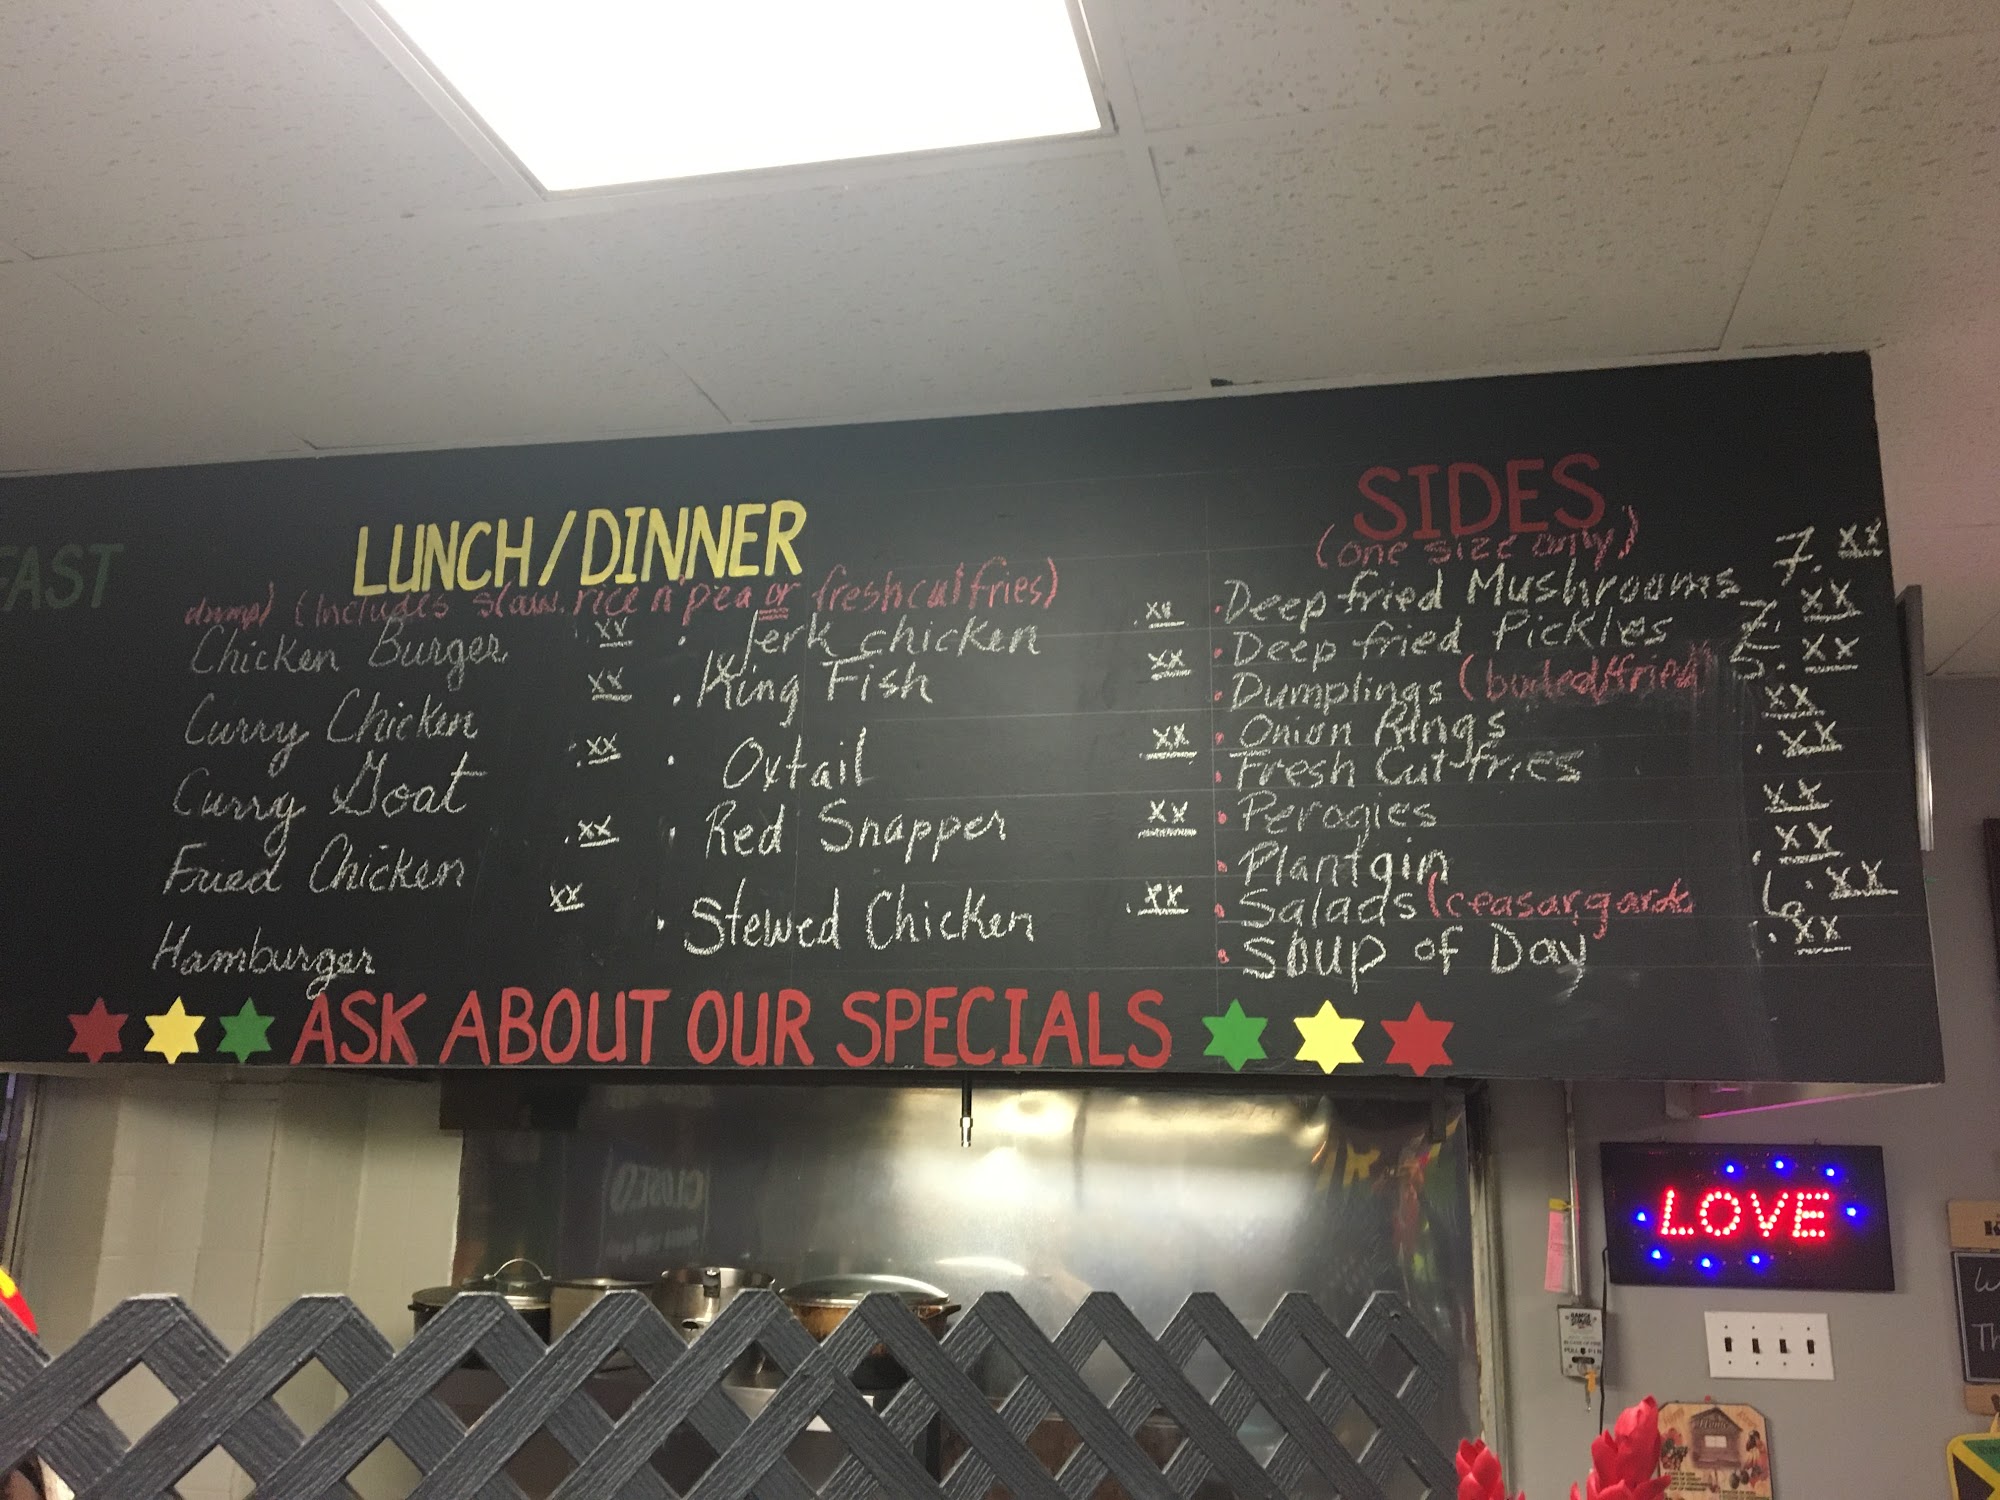 FAST
LUNCH/DINNER
(Includes slaw. rice n' pea or fresh cut fries)
Chicken Burger .xx
Curry Chicken xx
Curry Goat .xx
Fried Chicken .xx
Hamburger xx
· Jerk chicken .xx
· King Fish xx
· Oxtail .xx
· Red Snapper xx
· Stewed Chicken .xx
SIDES
(one size only)
· Deep fried Mushrooms 7.xx
· Deep fried Pickles 7.xx
· Dumplings (boiled/fried) 5.xx
· Onion Rings xx
· Fresh Cut fries .xx
· Perogies xx
· Plantain .xx
· Salads (ceasar, garden 6.xx
· Soup of Day .xx
ASK ABOUT OUR SPECIALS
CLOSED
LOVE
PULL PIN
Home